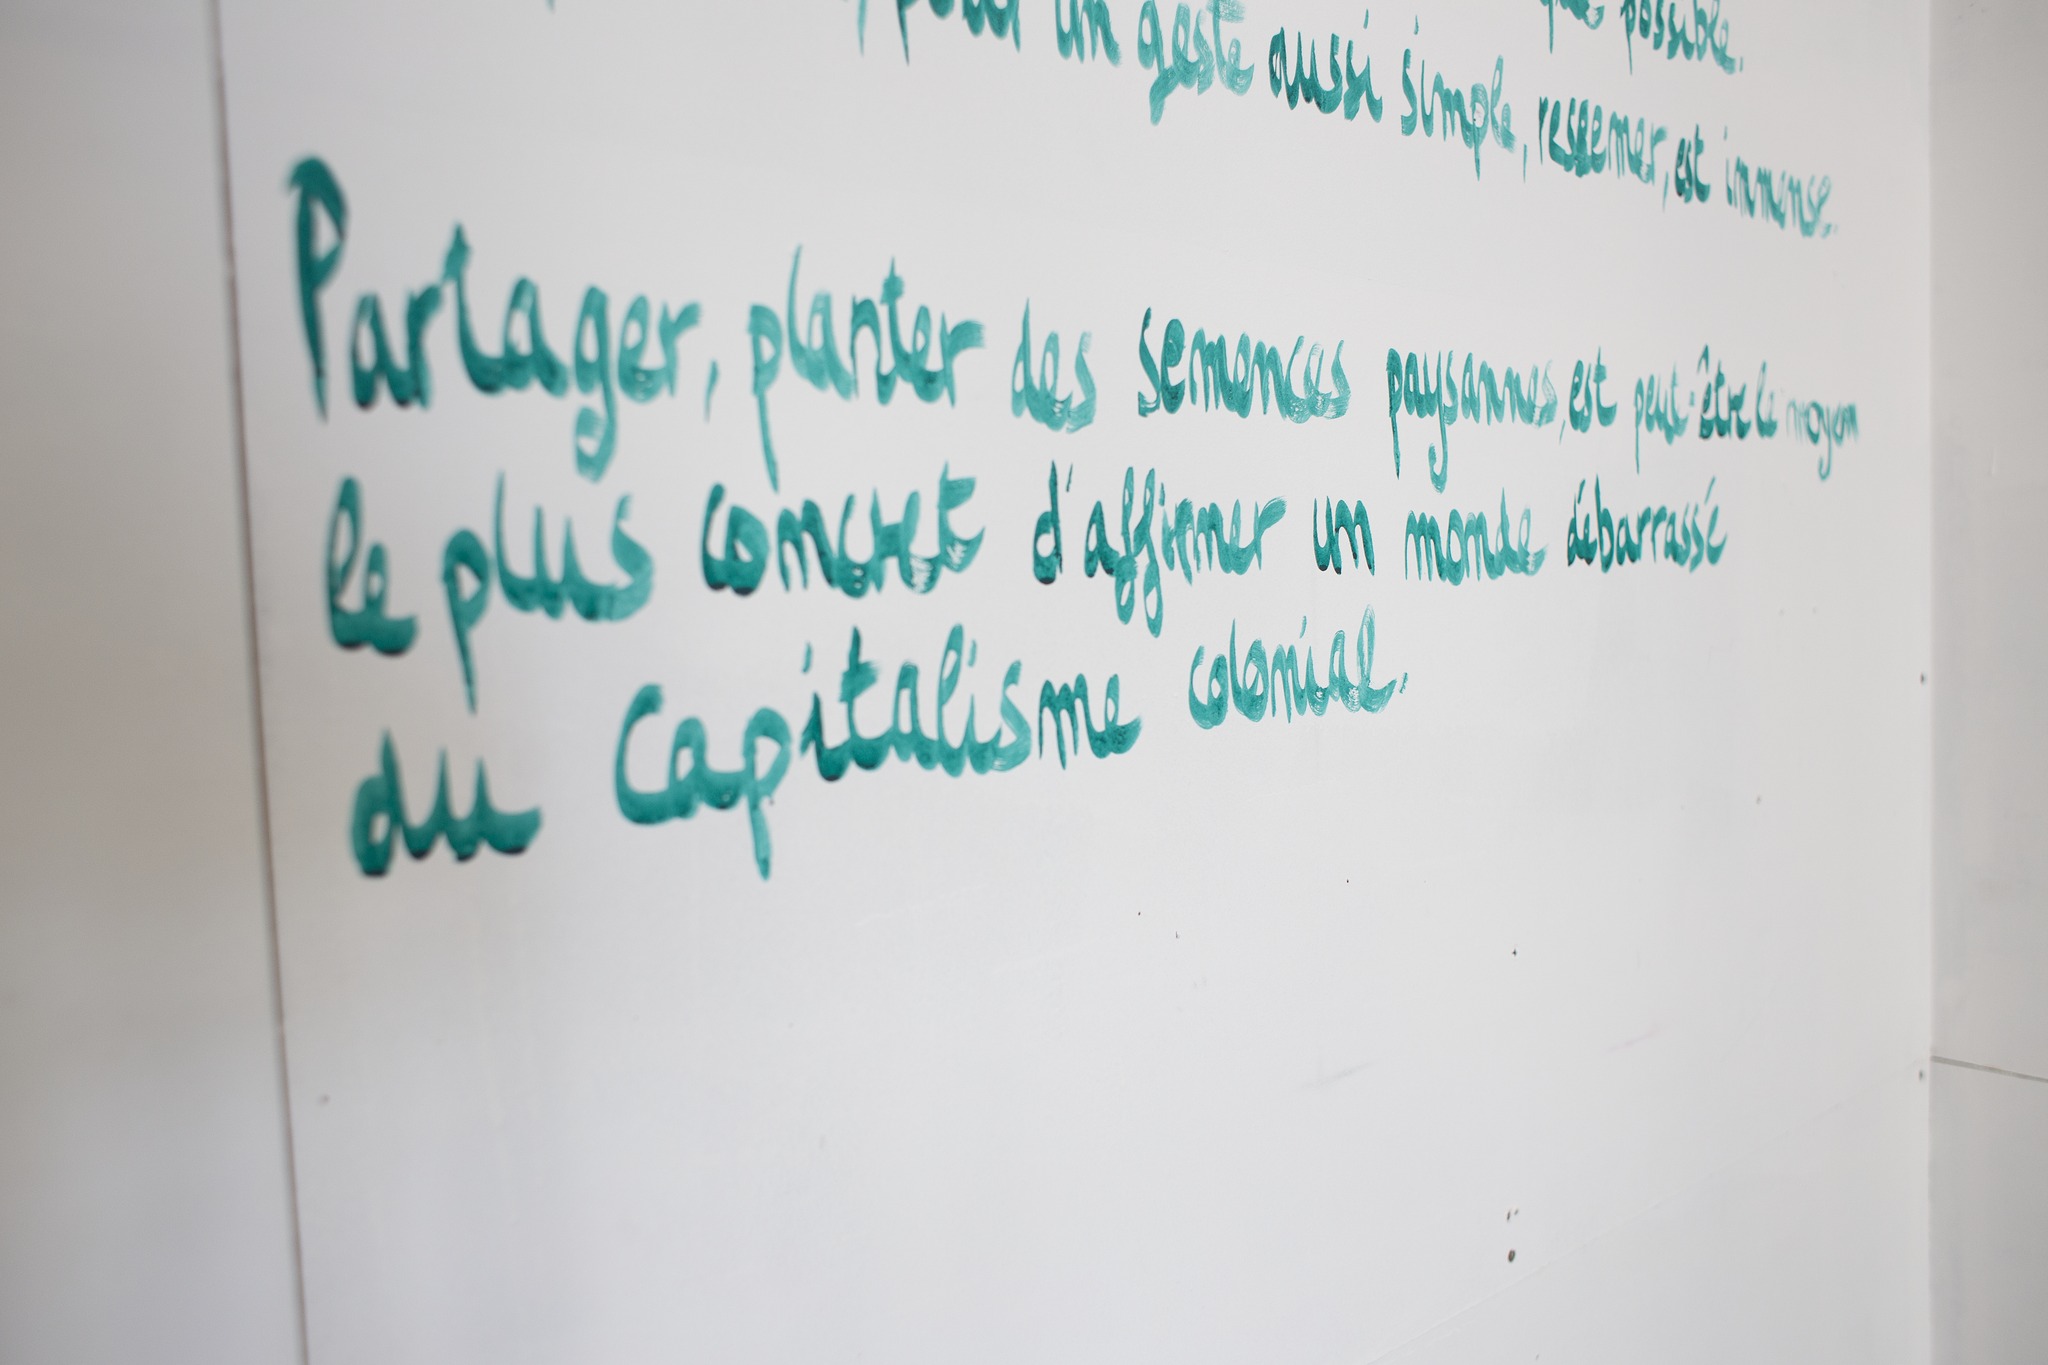 que possible.
pour un geste aussi simple, resemer, est immense.
Partager, planter des semences paysannes, est peut-être le moyen
le plus concret d'affirmer un monde débarrassé
du capitalisme colonial.